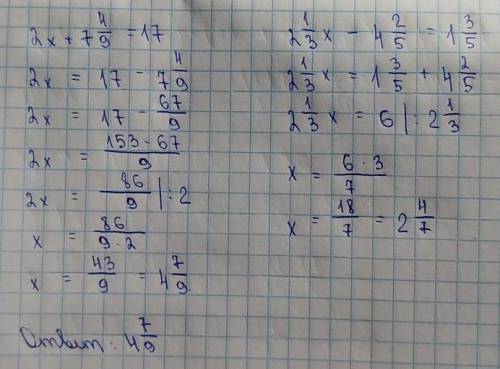 2x + 7 4/9 = 17
2x = 17 - 7 4/9
2x = 17 - 67/9
2x = (153 - 67)/9
2x = 86/9 | : 2
x = 86/(9 · 2)
x = 43/9 = 4 7/9
Ответ: 4 7/9
2 1/3 x - 4 2/5 = 1 3/5
2 1/3 x = 1 3/5 + 4 2/5
2 1/3 x = 6 | : 2 1/3
x = (6 · 3)/7
x = 18/7 = 2 4/7